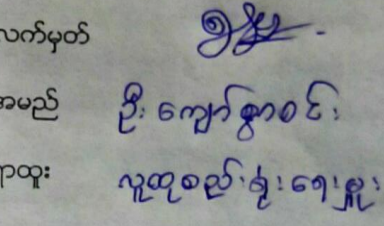 လက်မှတ်
အမည် ဦး ကျော်စွာဝင်း
ရာထူး လူထုစည်းရုံးရေးမှူး